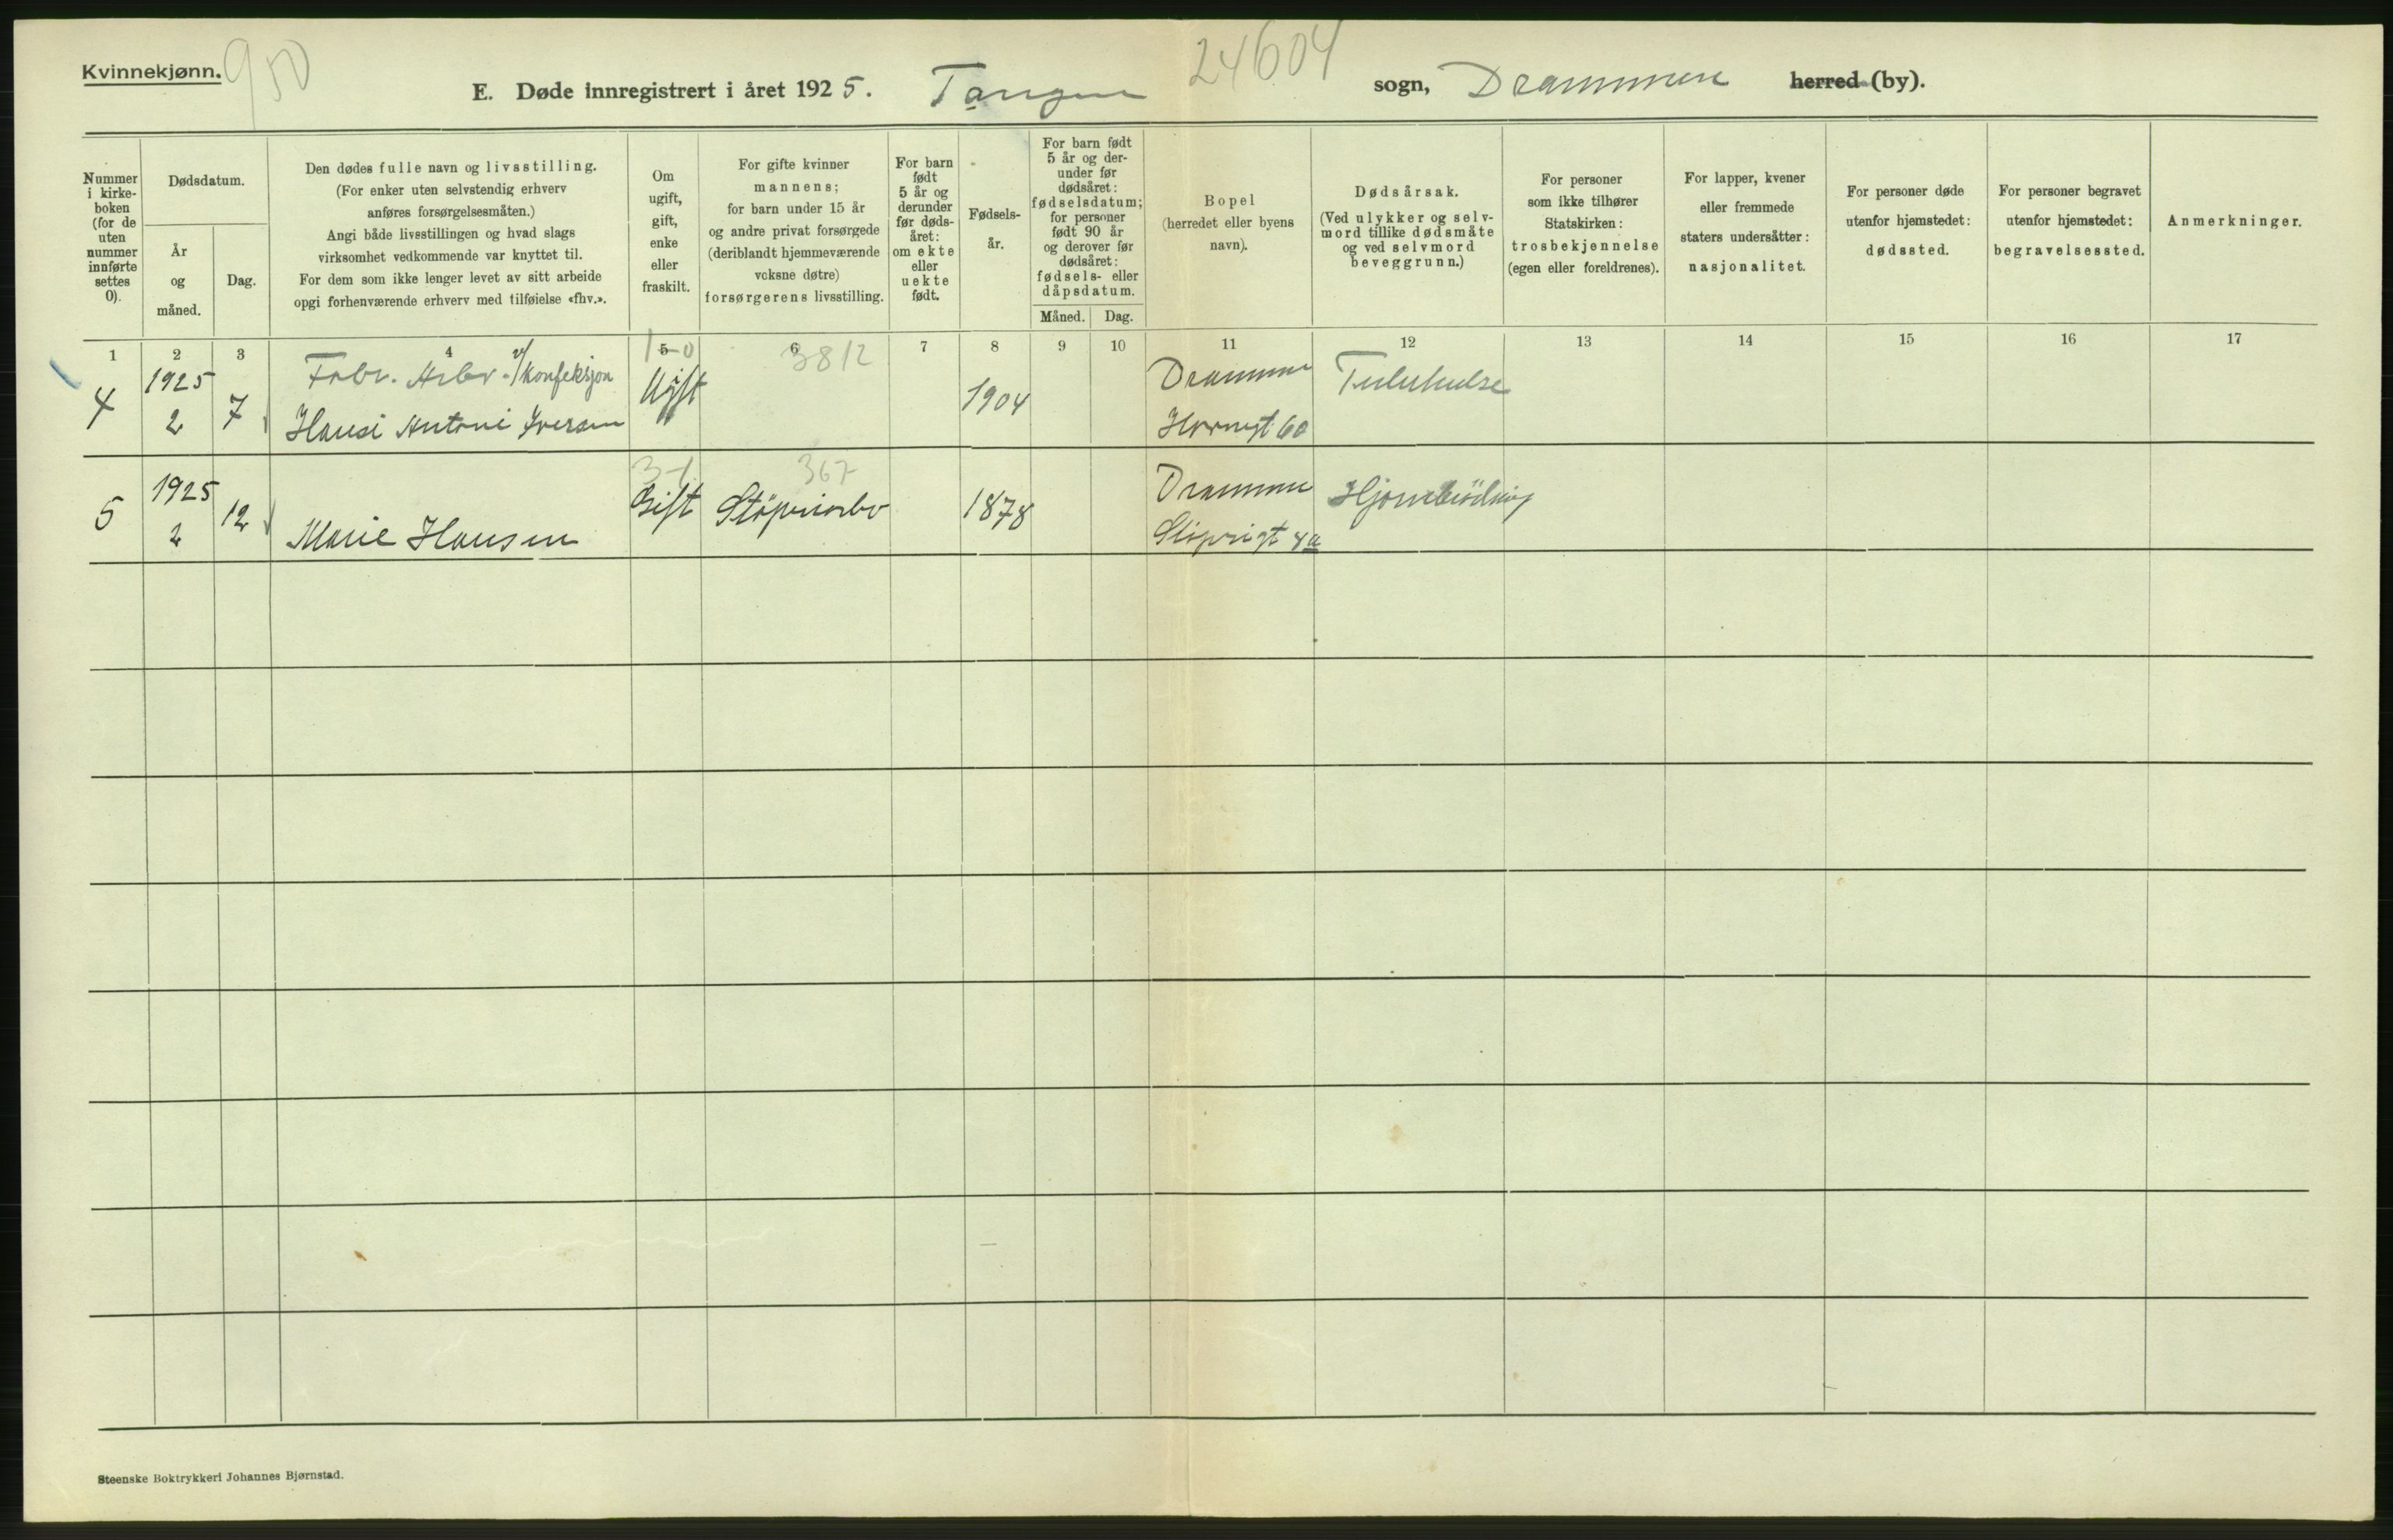 Kvinnekjønn.
950
24604
E. Døde innregistrert i året 1925. Tangen sogn, Drammen herred (by).
Nummer
i kirke-
boken
(for de
uten
nummer
innførte
settes
0).
Dødsdatum.
År
og
måned.
Dag.
Den dødes fulle navn og livsstilling.
(For enker uten selvstendig erhverv
anføres forsørgelsesmåten.)
Angi både livsstillingen og hvad slags
virksomhet vedkommende var knyttet til.
For dem som ikke lenger levet av sitt arbeide
opgi forhenværende erhverv med tilføielse «fhv.».
Om
ugift,
gift,
enke
eller
fraskilt.
For gifte kvinner
mannens;
for barn under 15 år
og andre privat forsørgede
(deriblandt hjemmeværende
voksne døtre)
forsørgerens livsstilling.
For barn
født
5 år og
derunder
før døds-
året:
om ekte
eller
uekte
født.
Fødsels-
år.
For barn født
5 år og der-
under før
dødsåret:
fødselsdatum;
for personer
født 90 år
og derover før
dødsåret:
fødsels- eller
dåpsdatum.
Måned. Dag.
Bopel
(herredet eller byens
navn).
Dødsårsak.
(Ved ulykker og selv-
mord tillike dødsmåte
og ved selvmord
beveggrunn.)
For personer
som ikke tilhører
Statskirken:
trosbekjennelse
(egen eller foreldrenes).
For lapper, kvener
eller fremmede
staters undersåtter:
nasjonalitet.
For personer døde
utenfor hjemstedet:
dødssted.
For personer begravet
utenfor hjemstedet:
begravelsessted.
Anmerkninger.
1 2 3 4 5 6 7 8 9 10 11 12 13 14 15 16 17
1-0 3812
1925 Fabr. Arb. v/ konfeksjon Ugift Drammen Tuberkulose
4 2 7 Hansi Antoni Iversen 1904 60
3-1 367
1925 Gift Støperiarb 1878 Drammen
5 2 12 Marie Hansen Støperigt 4a
Steenske Boktrykkeri Johannes Bjørnstad.